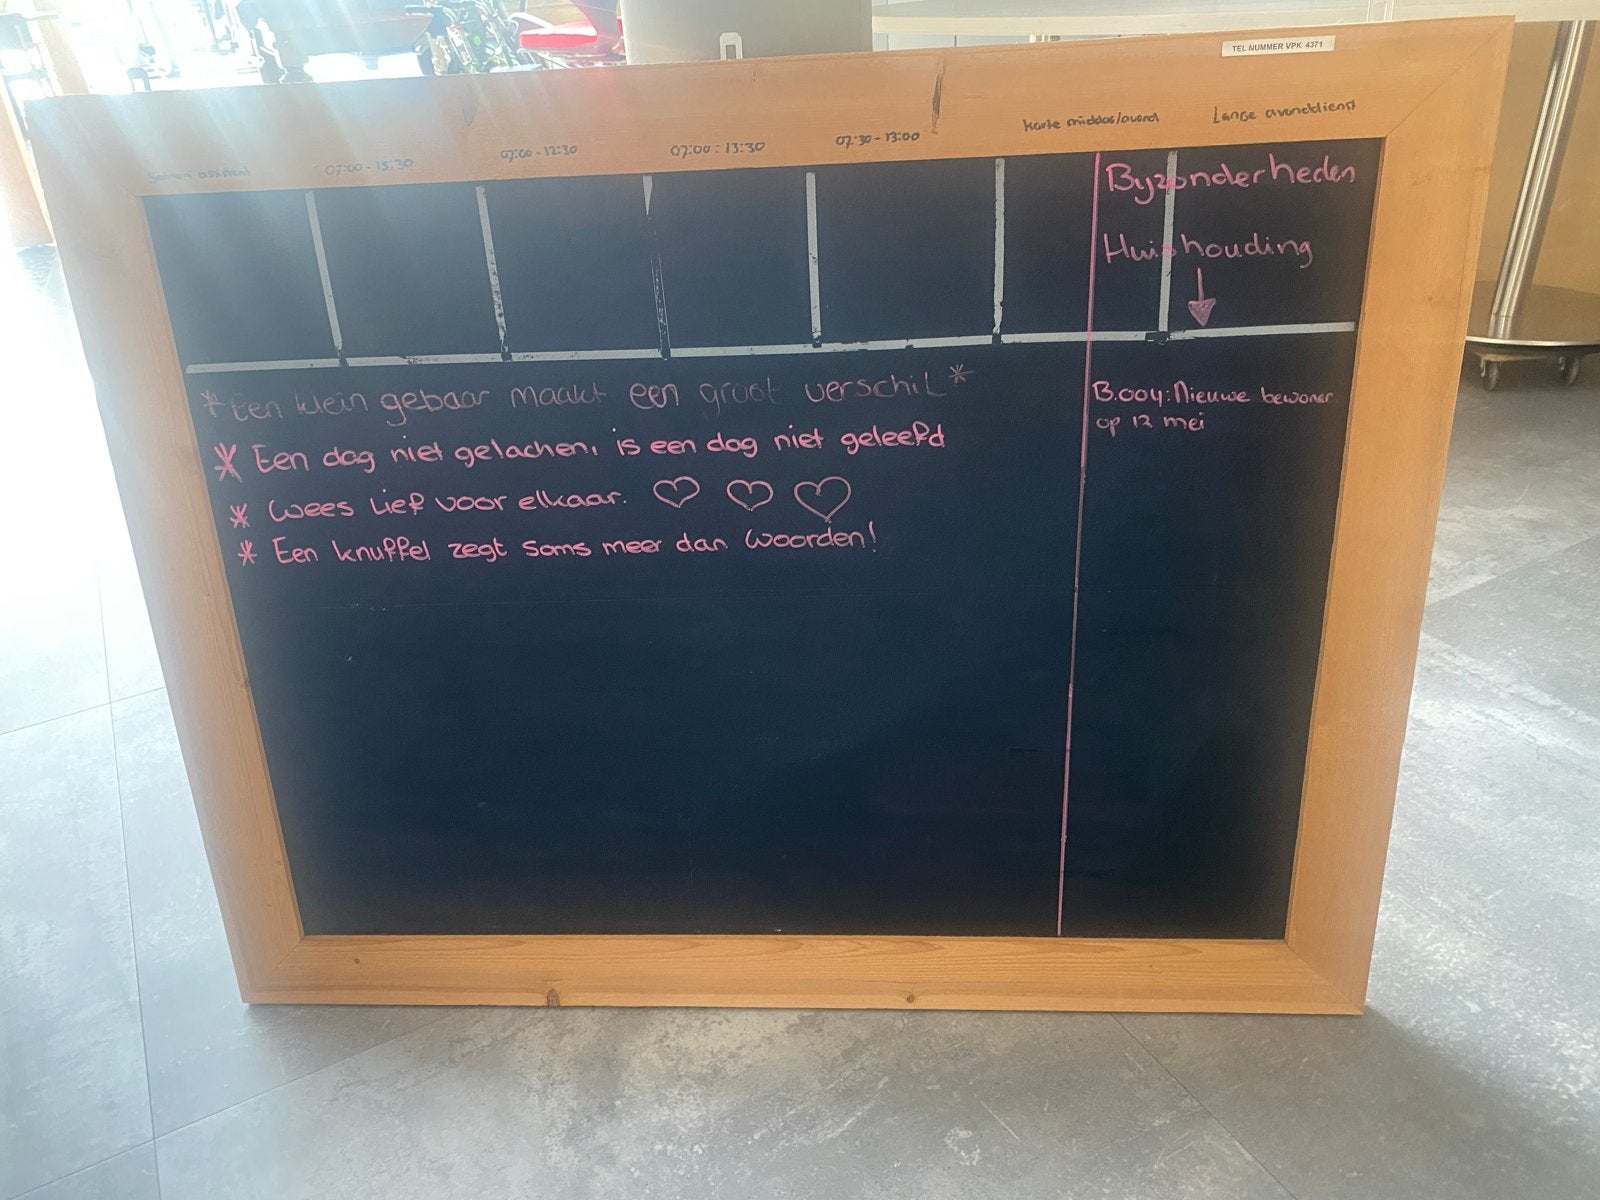 TEL NUMMER VPK 4371
assistent 07:00 - 15:30 07:00 - 12:30 07:00 : 13:30 07:30 - 13:00 korte middag/avond Lange avonddienst
Byzonderheden
Huishouding
*Een klein gebaar maakt een groot verschil*
* Een dag niet gelachen, is een dag niet geleefd
* Wees lief voor elkaar.
* Een knuffel zegt soms meer dan woorden!
B.004: Nieuwe bewoner
op 12 mei